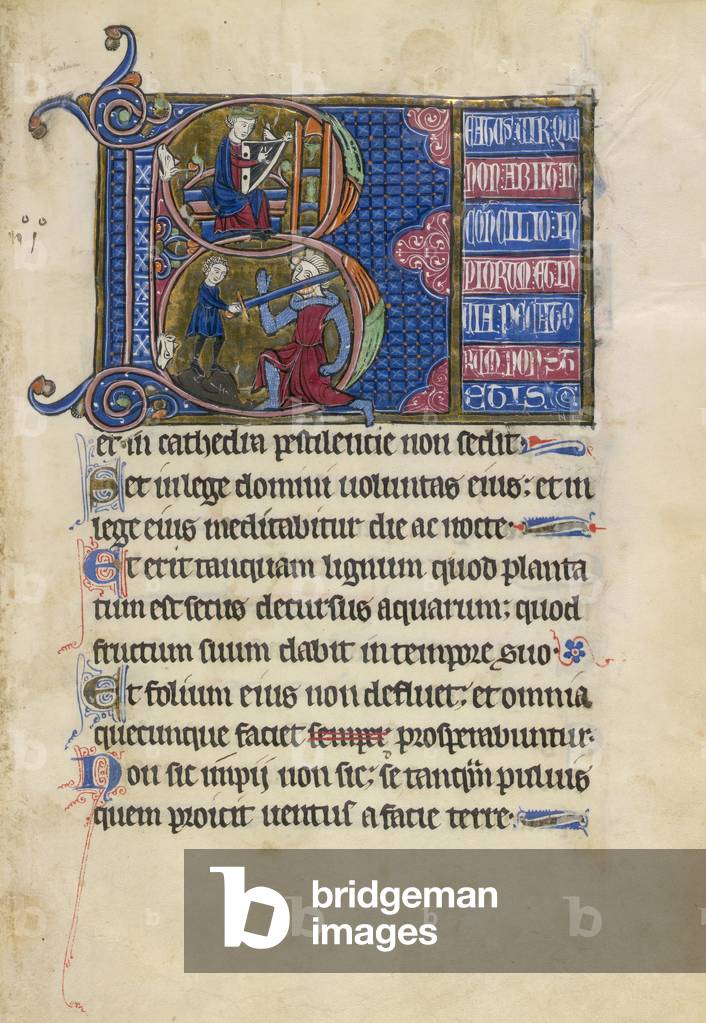 EATUS: UIR: QUI
NON: ABIIT: IN
CONCILIO: IN
PIORUM: ET: IN
UIA: PECCATO
RUM: NON: ST
ETIT: S
et in cathedra pestilencie non sedit.
Set in lege domini uoluntas eius: et in
lege eius meditabitur die ac nocte.
Et erit tanquam lignum quod planta
tum est secus decursus aquarum: quod
fructum suum dabit in tempore suo.
Et folium eius non defluet: et omnia
quecunque faciet semper prosperabuntur.
Non sic impij non sic: se tanqm puluis
quem proicit uentus a facie terre.
b bridgeman
images